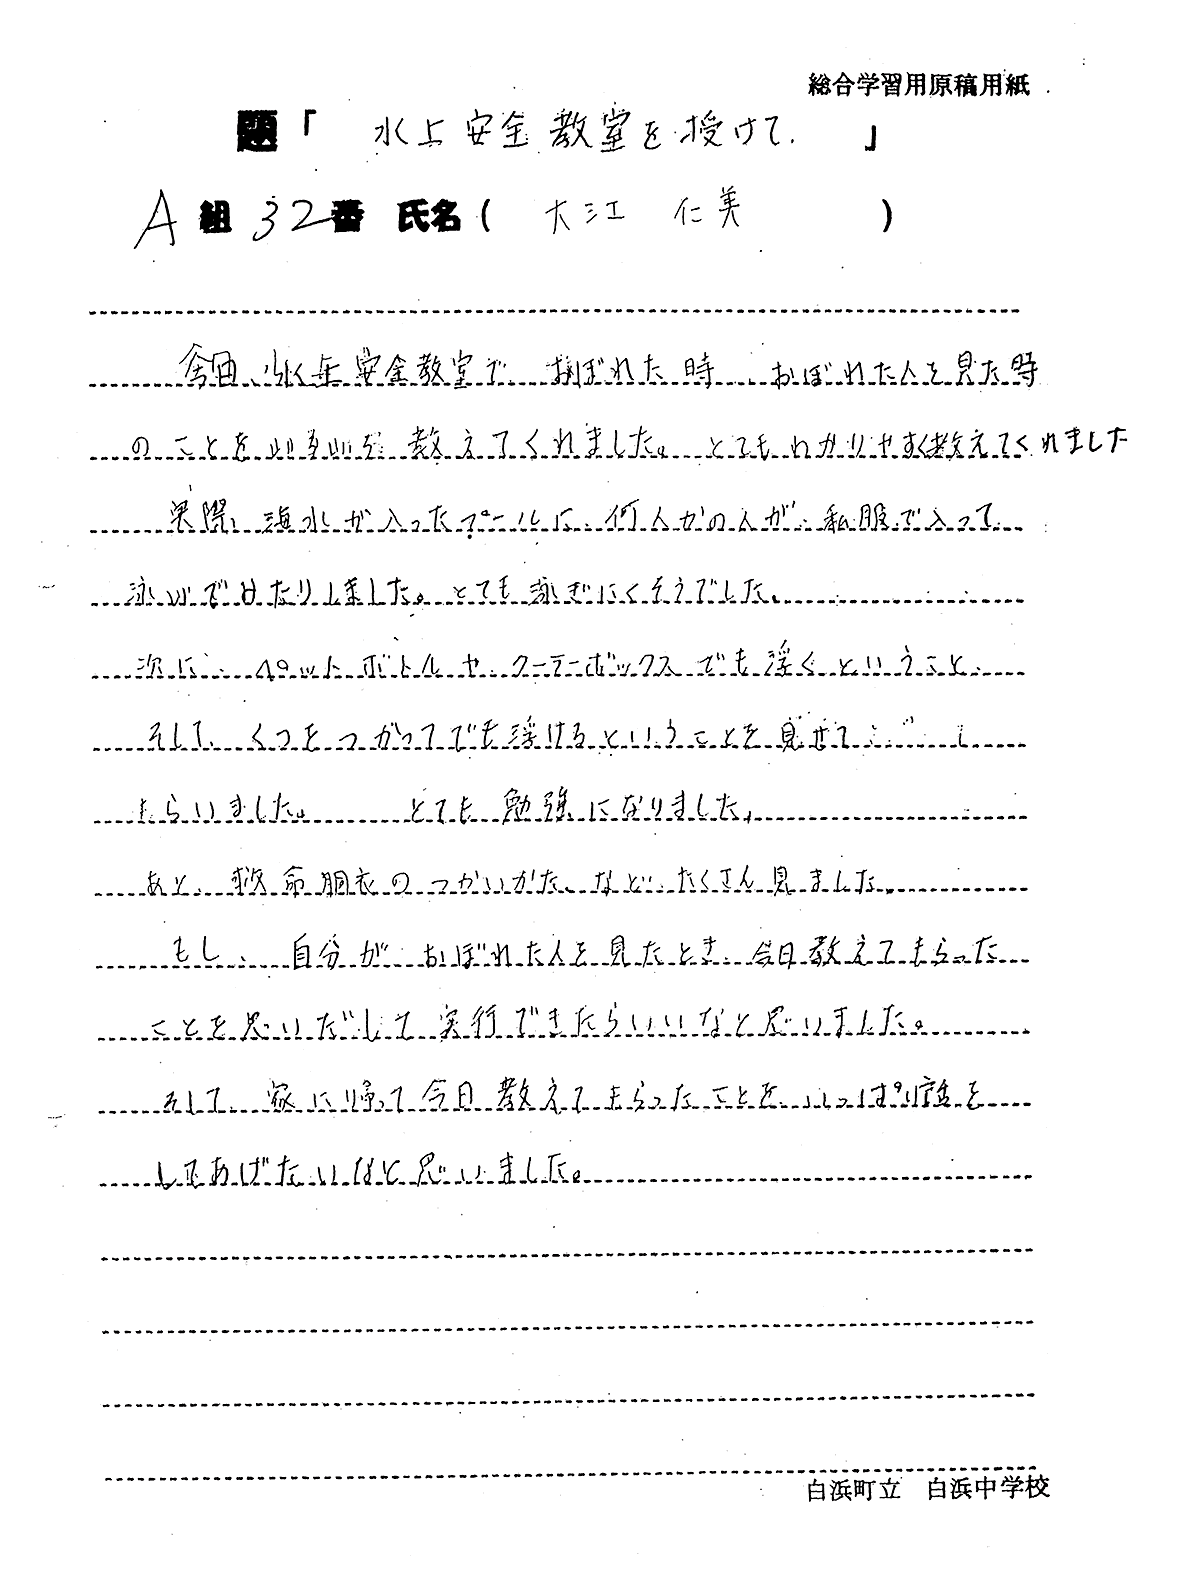 総合学習用原稿用紙
題「 水上安全教室を授けて. 」
A組32番 氏名( 大江 仁美 )
今回、水上安全教室で、おぼれた時、おぼれた人を見た時
のことを 教えてくれました。とてもわかりやすく教えてくれました
実際、海水が入ったプールに、何人かの人が、私服で入って、
泳いでみたりしました。とても泳ぎにくそうでした、
次に、ペットボトルや、クーラーボックスでも浮くということ、
そして、くつをつかってでも浮けるということを見せて
もらいました。 とても勉強になりました。
あと、救命胴衣のつかいかた、など、たくさん見ました。
もし、自分が、おぼれた人を見たとき、今日教えてもらった
ことを思いだして実行できたらいいなと思いました。
そして、家に帰って今日教えてもらったことを、いっぱい を
してあげたいなと思いました。
白浜町立 白浜中学校